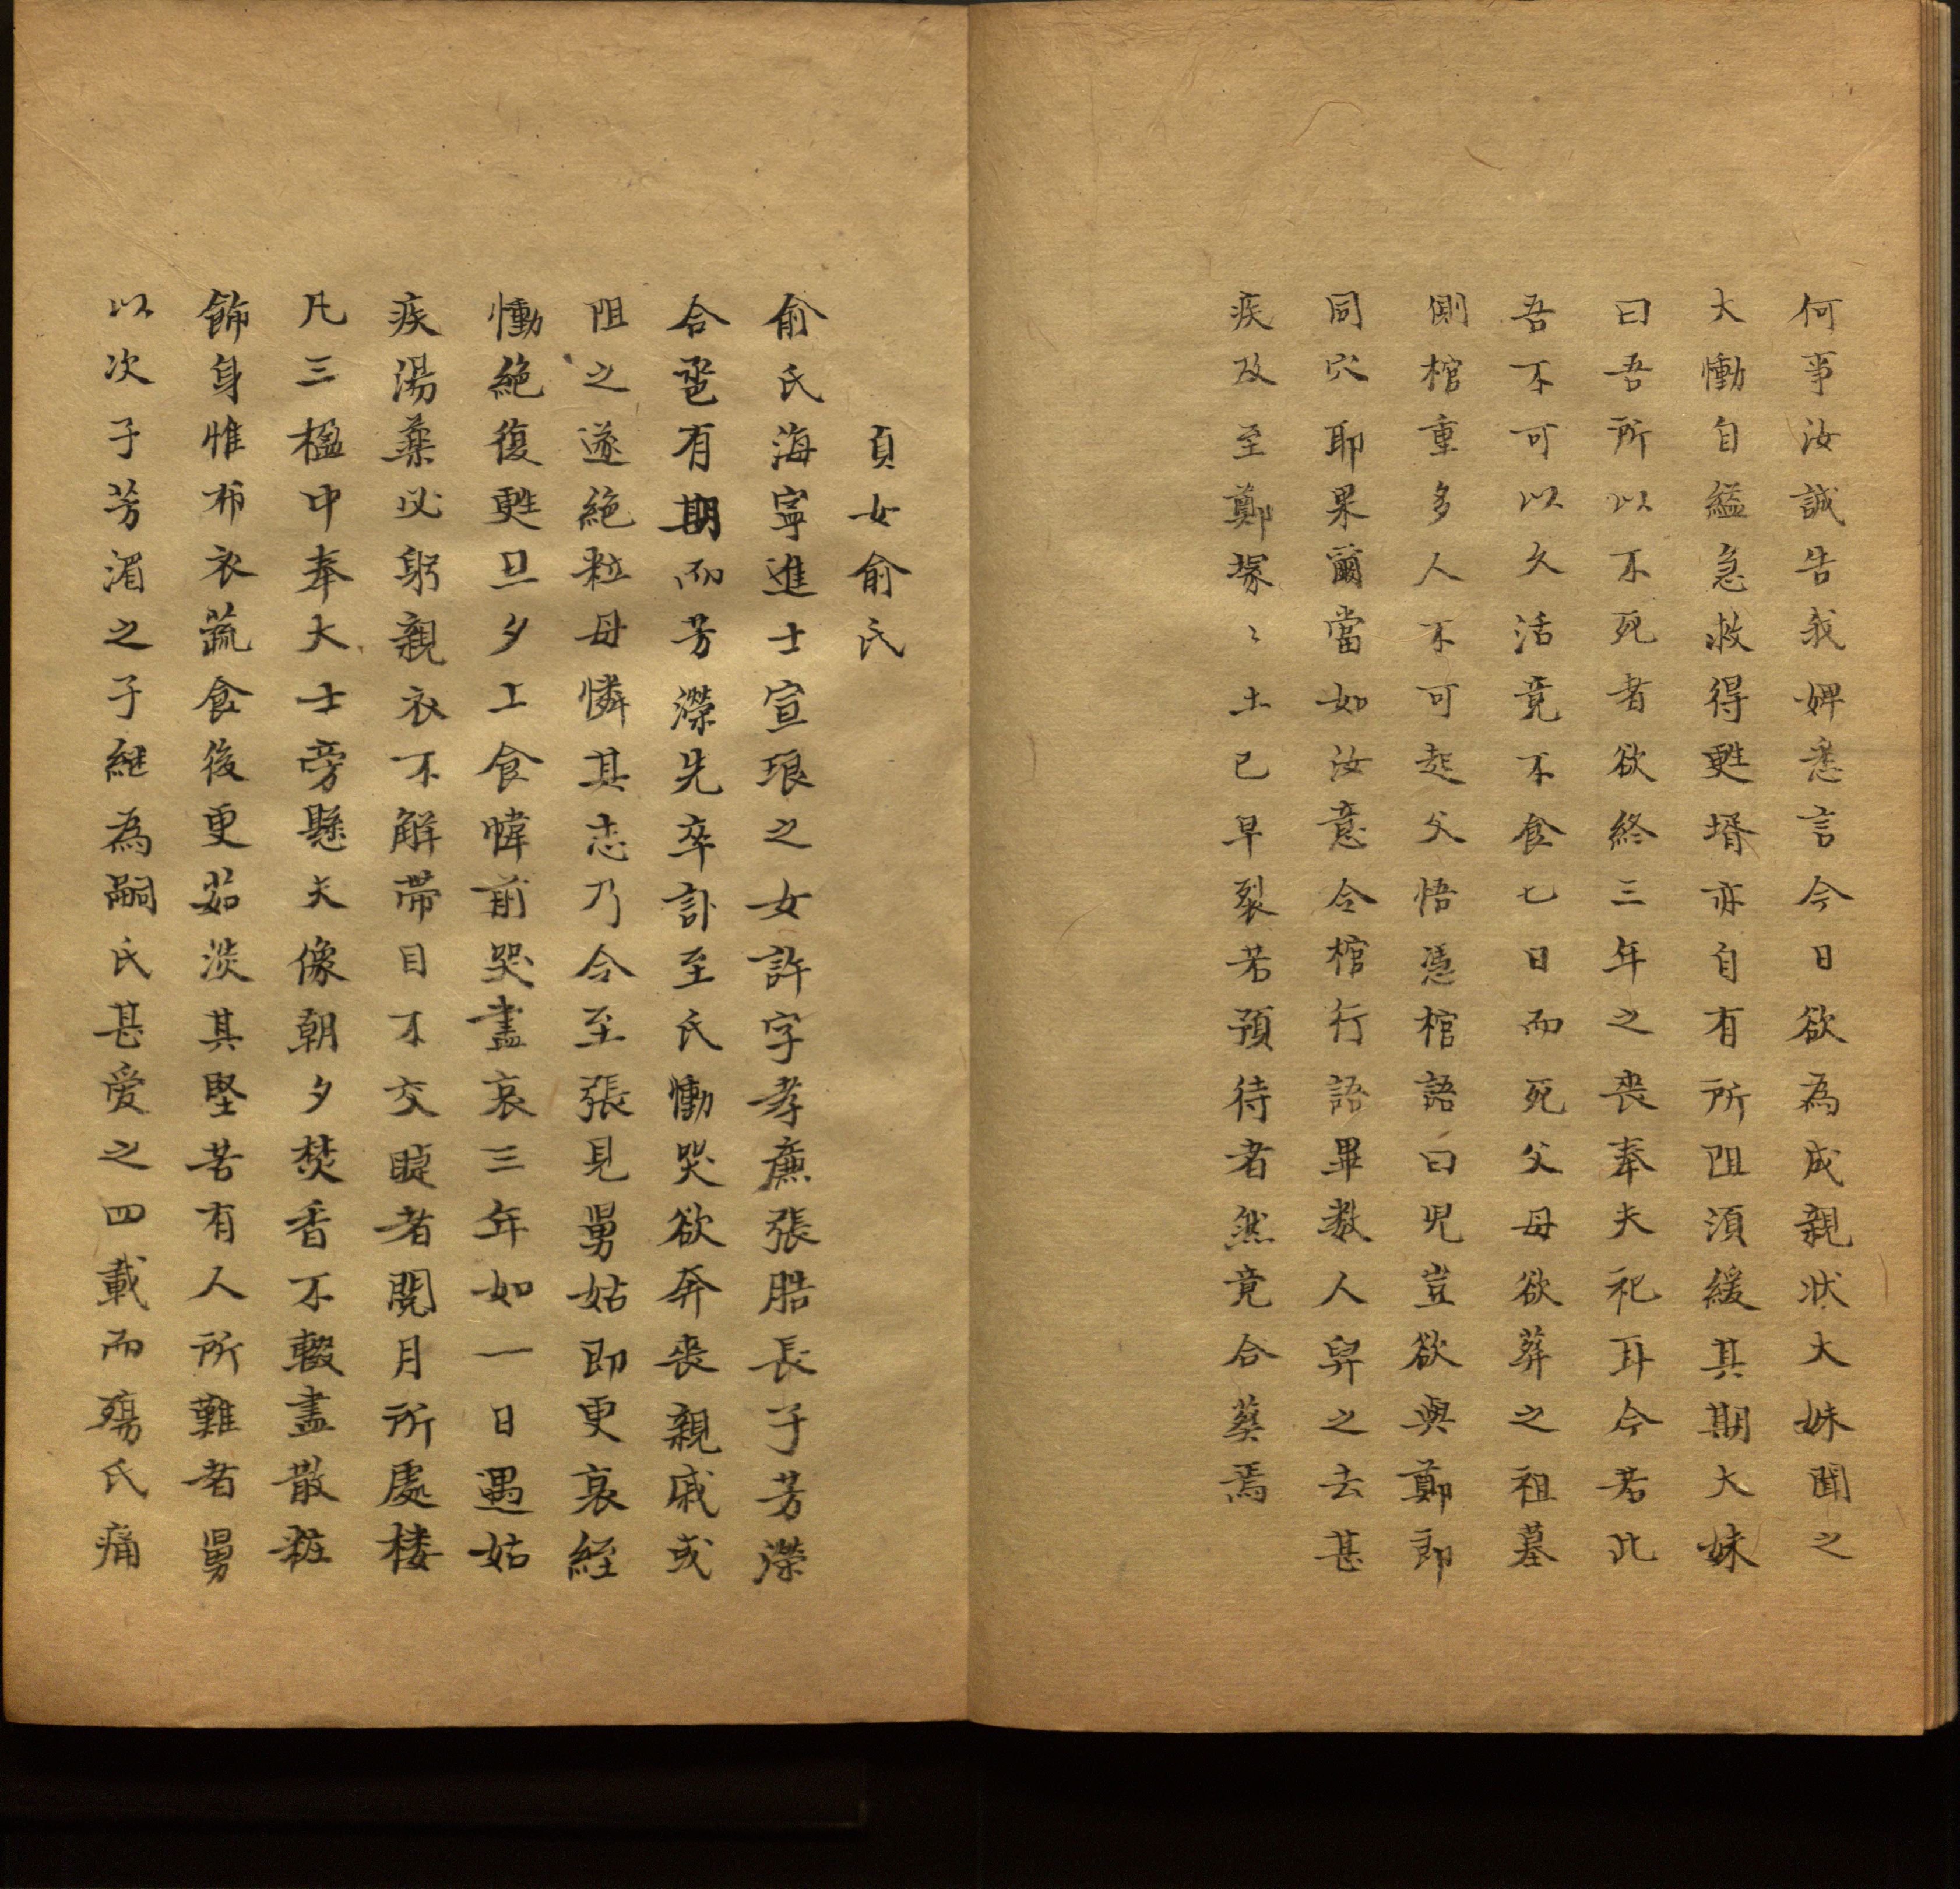 何事汝誠告我婢悉言今日欲為成親狀大妹聞之
大慟自縊急救得甦壻亦自有所阻須緩其期大妹
曰吾所以不死者欲終三年之喪奉夫祀耳今若此
吾不可以久活竟不食七日而死父母欲葬之祖墓
側棺重多人不可起父悟憑棺語曰兒豈欲與鄭郎
同穴耶果爾當如汝意令棺行語畢数人舁之去甚
疾及至鄭塚〻土已早裂若預待者然竟合葬焉
貞女俞氏
俞氏海寧進士宣琅之女許字孝廉張晧長子芳濚
合卺有期而芳濚先卒訃至氏慟哭欲奔喪親戚或
阻之遂絶粒母憐其志乃令至張見舅姑即更哀絰
慟絶復甦旦夕上食幃前哭盡哀三年如一日遇姑
疾湯藥必躬親衣不解帶目不交睫者閱月所處楼
凡三楹中奉大士旁懸夫像朝夕焚香不輟盡散粧
飾身惟布衣蔬食後更茹淡其堅苦有人所難者舅
以次子芳湄之子継為嗣氏甚爱之四載而殤氏痛